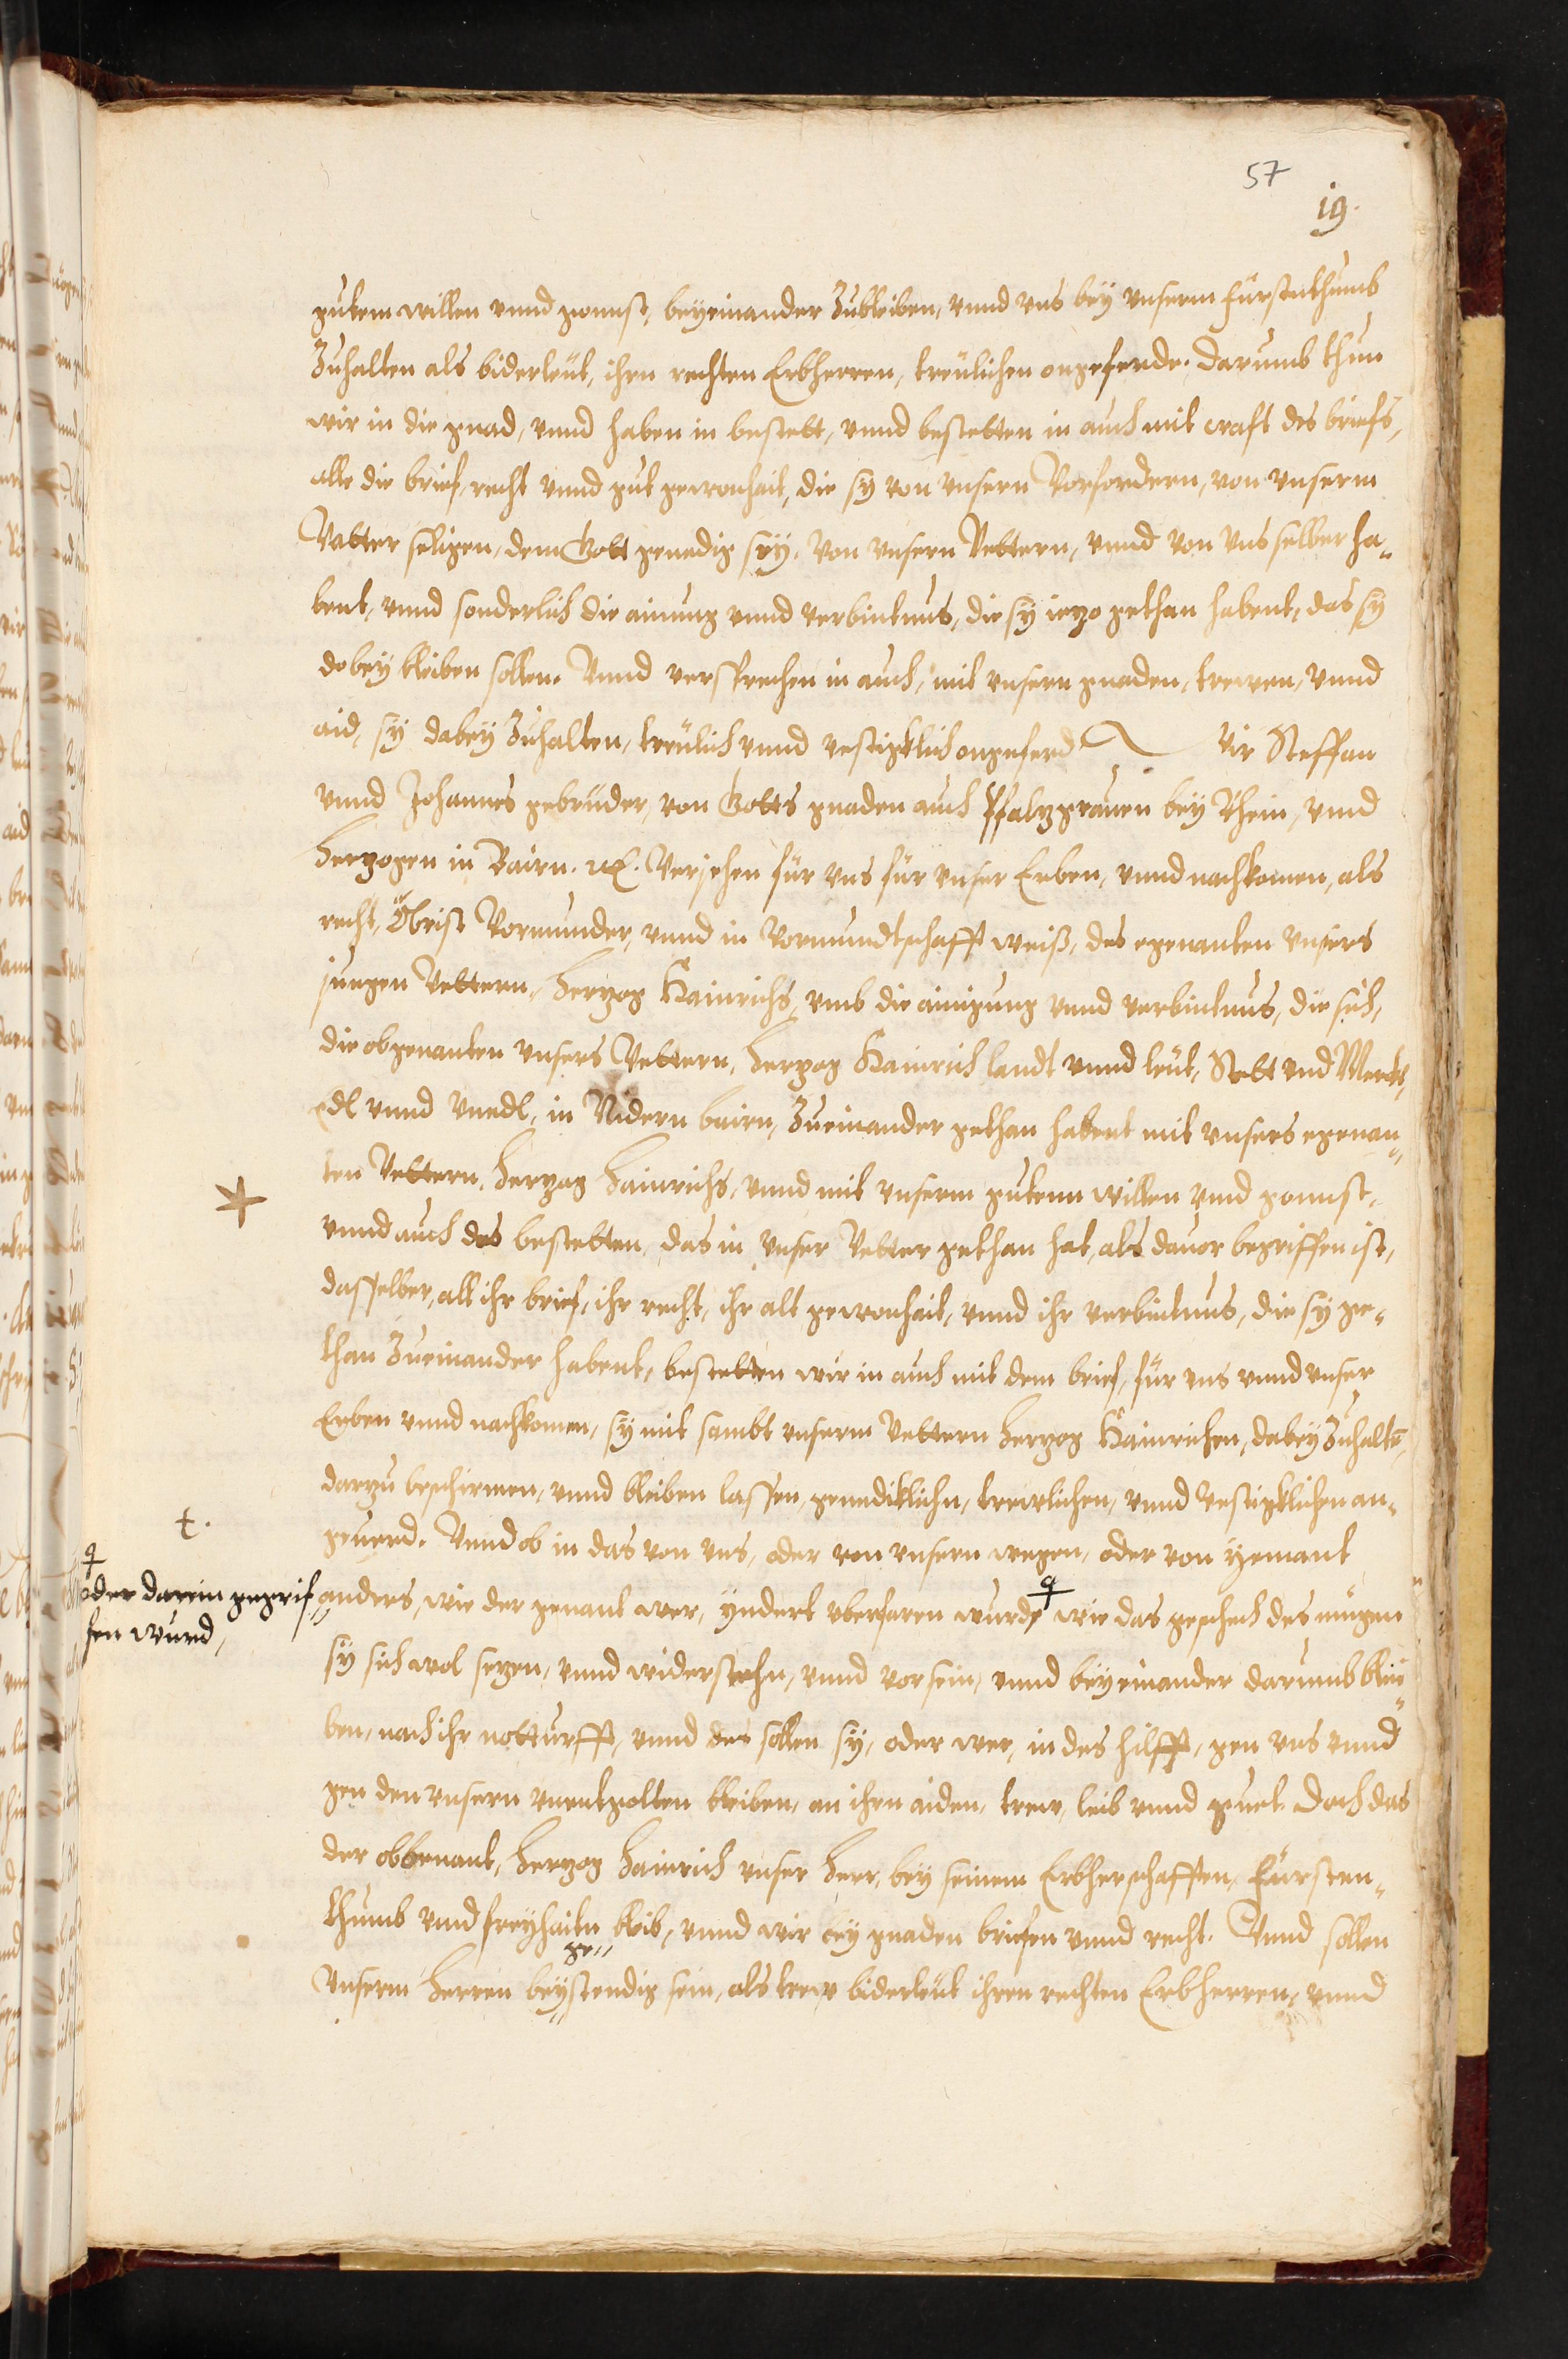 57
19.
gutem willen vnnd gonnst, beyeinander Zubleiben, vnnd vns bey vnserm fürstenthumb
Zuhalten als biderleüt, ihrn rechten Erbherren, treülichen ongeferde. Darumb thun
wir in die gnad, vnnd haben in bestett, vnnd bestetten in auch mit craft des briefs,
alle die brief, recht vnnd gut gewonhait, die sy von vnsern Vorfordern, von vnserm
Vatter seligen, dem Gott genedig sey, von vnsern Vettern, vnnd von vns selber ha„
bent, vnnd sonderlich die ainung vnnd verbintnus, die sy iezo gethan habent, das sy
dobey bleiben sollen. Vnnd versprechen in auch, mit vnsern gnaden, trewen, vnnd
aid, sy dabey Zuhalten, treülich vnnd vestigklich ongeferd Wir Steffan
vnnd Johannes gebrüder, von Gotts gnaden auch Pfalzgrauen bey Rhein, vnnd
Herzogen in Bairn. etc. Veriehen für vns für vnser Erben, vnnd nachkomen, als
recht, Öbrist Vormunder, vnnd in Vormundtschafft weiß, des egenanten vnsers
jungen Vettern, Herzog Hainrichs, vmb die ainigung vnnd verbintnus, die sich,
die obgenanten vnsers Vettern, Herzog Hainrich landt vnnd leüt, Stett vnd Merckt,
edl vnnd vnedl, in Nidern bairn, Zueinander gethan habent mit vnsers egenan„
ten Vettern, Herzog Hainrichs, vnnd mit vnserm gutenn willen vnnd gonnst,
vnnd auch des bestetten, das in vnser Vetter gethan hat, als dauor begriffen ist,
dasselber, all ihr brief, ihr recht, ihr alt gewonhait, vnnd ihr verbintnus, die sy ge„
than Zueinander habent, bestetten wir in auch mit dem brief, für vns vnnd vnser
Erben vnnd nachkomen, sy mit sambt vnserm Vettern Herzog Hainrichen, dabey Zuhaltē,
darzu beschirmen, vnnd bleiben lassen, genediklichn, trewlichen, vnnd vestigklichen an„
geuerd. Vnnd ob in das von vns, oder von vnsern wegen, oder von yemant
oder darein gegrif„
fen wurd,
anders, wie der genant wer, yndert vberfaren wurde wie das geschech des mügen
sy sich wol sezen, vnnd widerstehn, vnnd vor sein, vnnd beyeinander darumb blei„
ben, nach ihr notturfft, vnnd des sollen sy, oder wer, in des hilfft, gen vns vnnd
gen den vnsern vnentgolten bleiben, an ihrn aiden, trew, leib vnnd guet. Doch das
der obbenant, Herzog Hainrich vnser Herr, bey seinem Erbherschafften, Fürsten„
thumb vnnd freyhaitn bleib, vnnd wir bey gnaden briefen vnnd recht. Vnnd sollen
ge„
vnserm Herren beystendig sein, als trew biderleüt ihren rechten Erbherren, vnnd